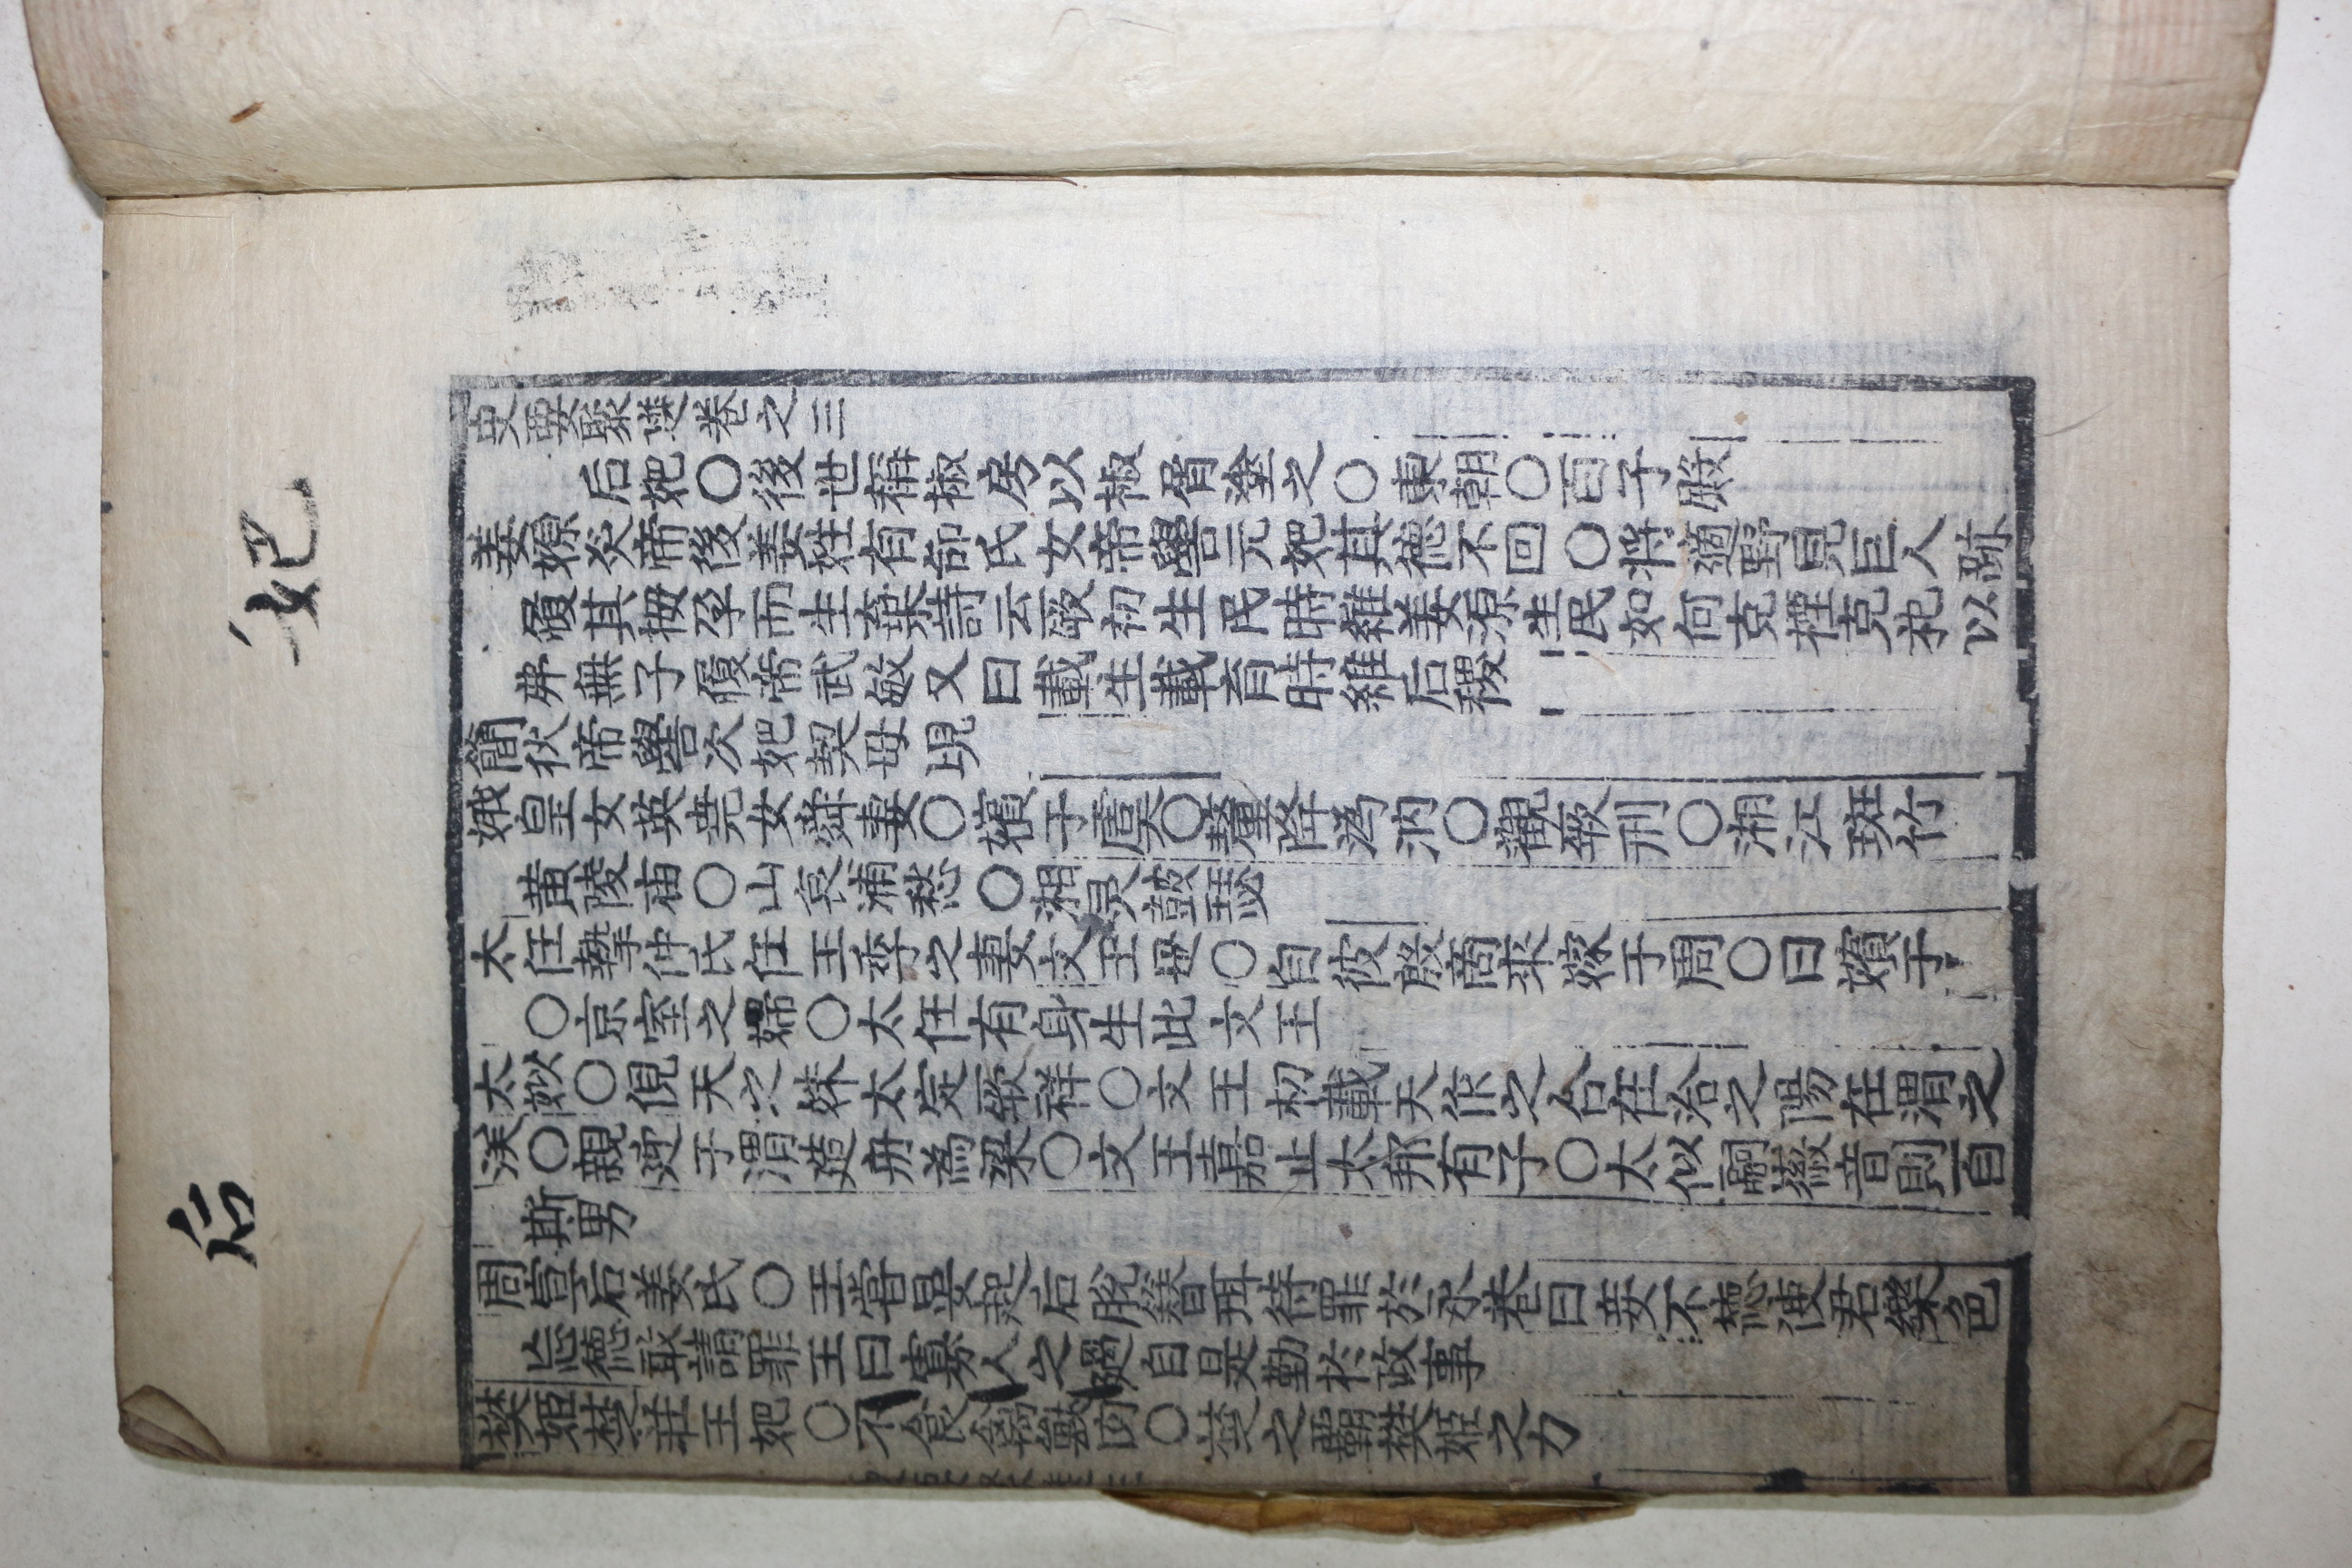 妃
后
史要聚選卷之三
后妃〇後世稱椒房以椒屑塗之〇東朝〇百子殿
姜嫄炎帝後姜姓有邰氏女帝嚳元妃其德不回〇將適野見巨人跡
履其拇孕而生棄詩云厥初生民時維姜源生民如何克禋克祀以
弗無子履帝武敏又曰載生載育時維后稷
簡狄帝嚳次妃契母
娥皇女英堯女舜妻〇嬪于虞〇釐降潙汭〇觀厥刑〇湘江斑竹
黃陵庙〇山哀浦愁〇湘灵鼓瑟
太任摯仲氏任王季之妻文王母〇自彼殷商來嫁于周〇曰嬪于
〇京室之婦〇太任有身生此文王
太姒〇俔天之妹太定厥祥〇文王初載天作之合在洽之陽在渭之
涘〇親迎于渭造舟為梁〇文王嘉止太邦有子〇太似嗣徽音則百
斯男
周宣后姜氏〇王嘗晏起后脫簪珥待罪於永巷曰妾不德使君樂色
忘德敢請罪王曰寡人之過自是勤於政事
樊姬楚莊王妃〇不食禽獸肉〇楚之霸樊姬之力